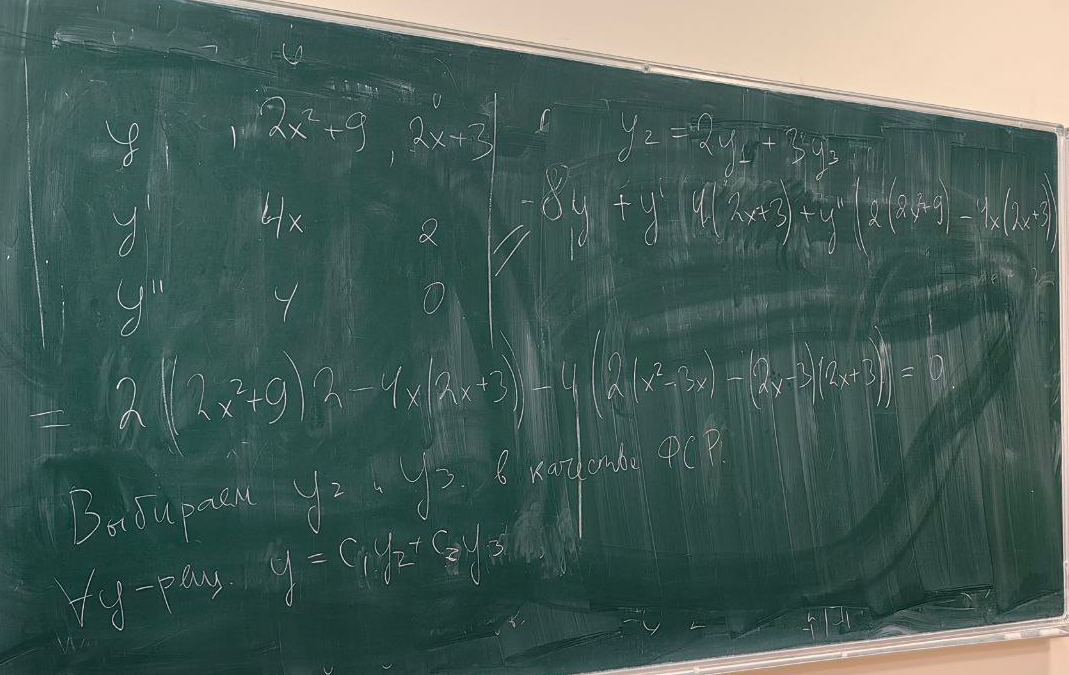 y , 2x²+9 , 2x+3
y' 4x 2
y'' 4 0
y₂ = 2y₁ + 3y₃
-8y + y' 4(2x+3) + y'' (2(2x²+9) - 4x(2x+3))
= 2((2x²+9)2 - 4x(2x+3)) - 4(2(x²-3x) - (2x-3)(2x+3)) = 0.
Выбираем y₂ и y₃. в качестве ФСР.
∀y-реш. y = C₁y₂ + C₂y₃